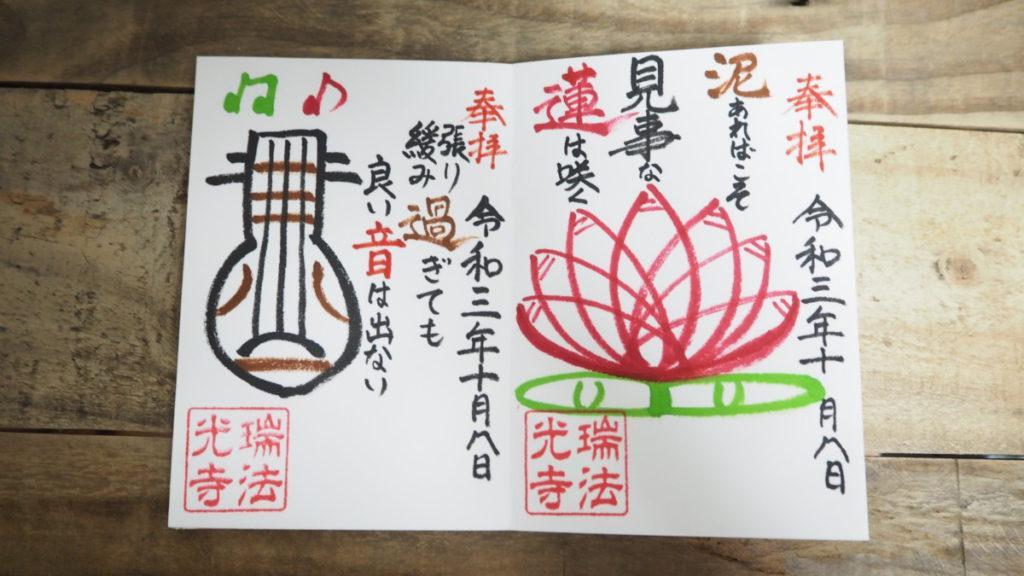 奉拝
令和三年十月八日
泥あればこそ
見事な
蓮は咲く
瑞法
光寺
奉拝
令和三年十月八日
張り
緩み過ぎても
良い音は出ない
瑞法
光寺